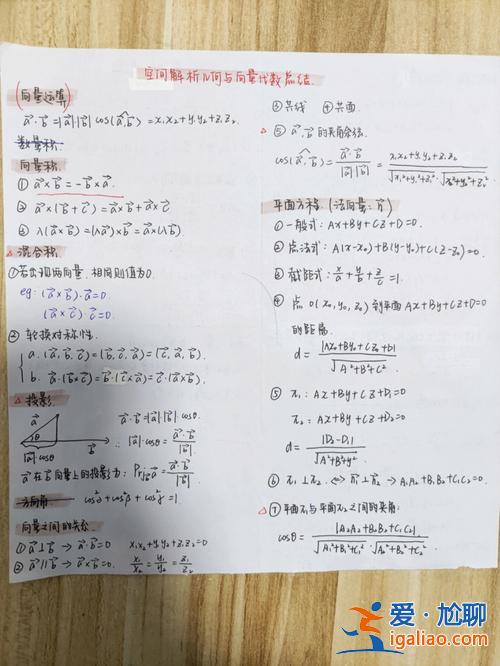 空间解析几何与向量代数总结.
(向量运算)
a⃗·b⃗=|a⃗|·|b⃗| cos(a⃗,b⃗)=x₁x₂+y₁y₂+z₁z₂
数量积.
向量积
① a⃗×b⃗=-b⃗×a⃗.
② a⃗×(b⃗+c⃗)=a⃗×b⃗+a⃗×c⃗
③ λ(a⃗×b⃗)=(λa⃗)×b⃗=a⃗×(λb⃗)
△ 混合积
①若出现两向量,相同则值为0.
eg: (a⃗×b⃗)·a⃗=0.
(a⃗×c⃗)·c⃗=0.
② 轮换对称性.
a. (a⃗,b⃗,c⃗)=(b⃗,c⃗,a⃗)=(c⃗,a⃗,b⃗).
b. a⃗·(b⃗×c⃗)=b⃗·(c⃗×a⃗)=c⃗·(a⃗×b⃗)
△ 投影
a⃗ θ b⃗
|a⃗|·cosθ
a⃗·b⃗=|a⃗|·|b⃗|·cosθ.
∴|a⃗|·cosθ=a⃗·b⃗/|b⃗|
a⃗在b⃗向量上的投影为: Prj_b⃗ a⃗=a⃗·b⃗/|b⃗|
方向角. cos²α+cos²β+cos²γ=1.
向量之间的关系
① a⃗⊥b⃗ → a⃗·b⃗=0 x₁x₂+y₁y₂+z₁z₂=0
② a⃗∥b⃗ → a⃗×b⃗=0. x₁/x₂=y₁/y₂=z₁/z₂
③ 共线 ④ 共面.
△ ⑤ a⃗,b⃗的夹角余弦.
cos(a⃗,b⃗)=a⃗·b⃗/|a⃗||b⃗|=x₁x₂+y₁y₂+z₁z₂/√x₁²+y₁²+z₁²·√x₂²+y₂²+z₂²
平面方程.(法向量:n⃗)
① 一般式: Ax+By+Cz+D=0.
② 点法式: A(x-x₀)+B(y-y₀)+C(z-z₀)=0.
③ 截距式: x/a+y/b+z/c=1.
④ 点 0(x₀,y₀,z₀)到平面Ax+By+Cz+D=0
的距离.
d=|Ax₀+By₀+Cz₀+D|/√A²+B²+C²
⑤ π₁: Ax+By+Cz+D₁=0
π₂: Ax+By+Cz+D₂=0
d=|D₂-D₁|/√A²+B²+C²
⑥ π₁⊥π₂. ↔ n⃗₁⊥n⃗₂ → A₁A₂+B₁B₂+C₁C₂=0.
△ ⑦ 平面π₁与平面π₂之间的夹角:
cosθ=|A₁A₂+B₁B₂+C₁C₂|/√A₁²+B₁²+C₁²·√A₂²+B₂²+C₂²
爱·尬聊
igaliao.com